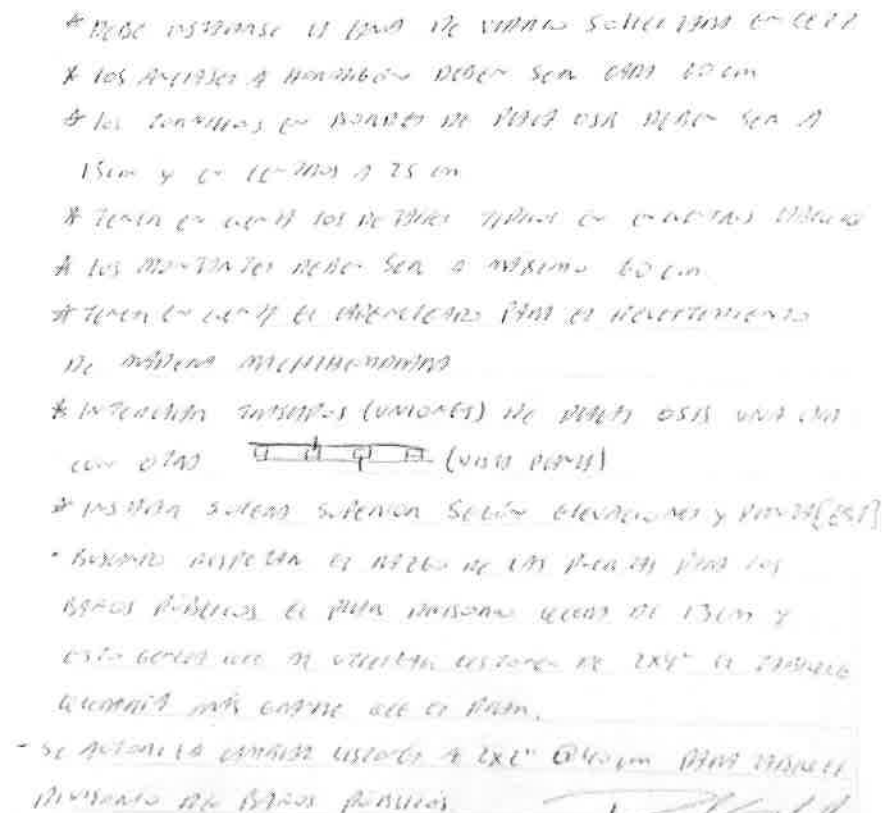 * DEBE INSTALARSE LA LANA DE VIDRIO SOLICITADA EN
* LOS ANCLAJES A HORMIGÓN DEBEN SER CADA 60 cm
* LOS TORNILLOS EN BORDES DE PLACA OSB DEBEN SER A
15cm Y EN CENTROS A 25 cm
* TENER EN CUENTA LOS DETALLES TÍPICOS EN ENCUENTROS TABIQUES
* LOS MONTANTES DEBEN SER A MÁXIMO 60 cm
* TENER EN CUENTA EL PARA EL REVESTIMIENTO
DE MADERA MACHIHEMBRADA
* INTERCALAR TRASLAPOS (UNIONES) DE PLACAS OSB UNA CARA
CON OTRA (VISTA PLANTA)
* INSTALAR SOLERA SUPERIOR SEGÚN ELEVACIONES Y PLANTA [EST]
- BUSCANDO RESPETAR EL RASGO DE LAS PUERTAS PARA LOS
BAÑOS PÚBLICOS EL PILAR DIVISORIO QUEDA DE 13cm Y
ESTO GENERA QUE AL UTILIZAR LISTONES DE 2x4" EL TABIQUE
QUEDARÍA MÁS GRANDE QUE EL PILAR.
- SE AUTORIZA CAMBIAR LISTONES A 2x2" @40cm PARA TABIQUE
DIVISORIO DE BAÑOS PÚBLICOS